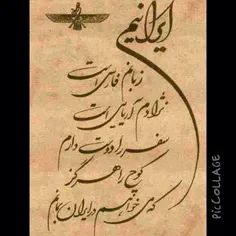 ایرانیم
زبانم فارسی است
نژادم آریایی است
سفر را دوست دارم
کوچ را هرگز
که می خواهم در ایران بمانم
PicCOLLAGE